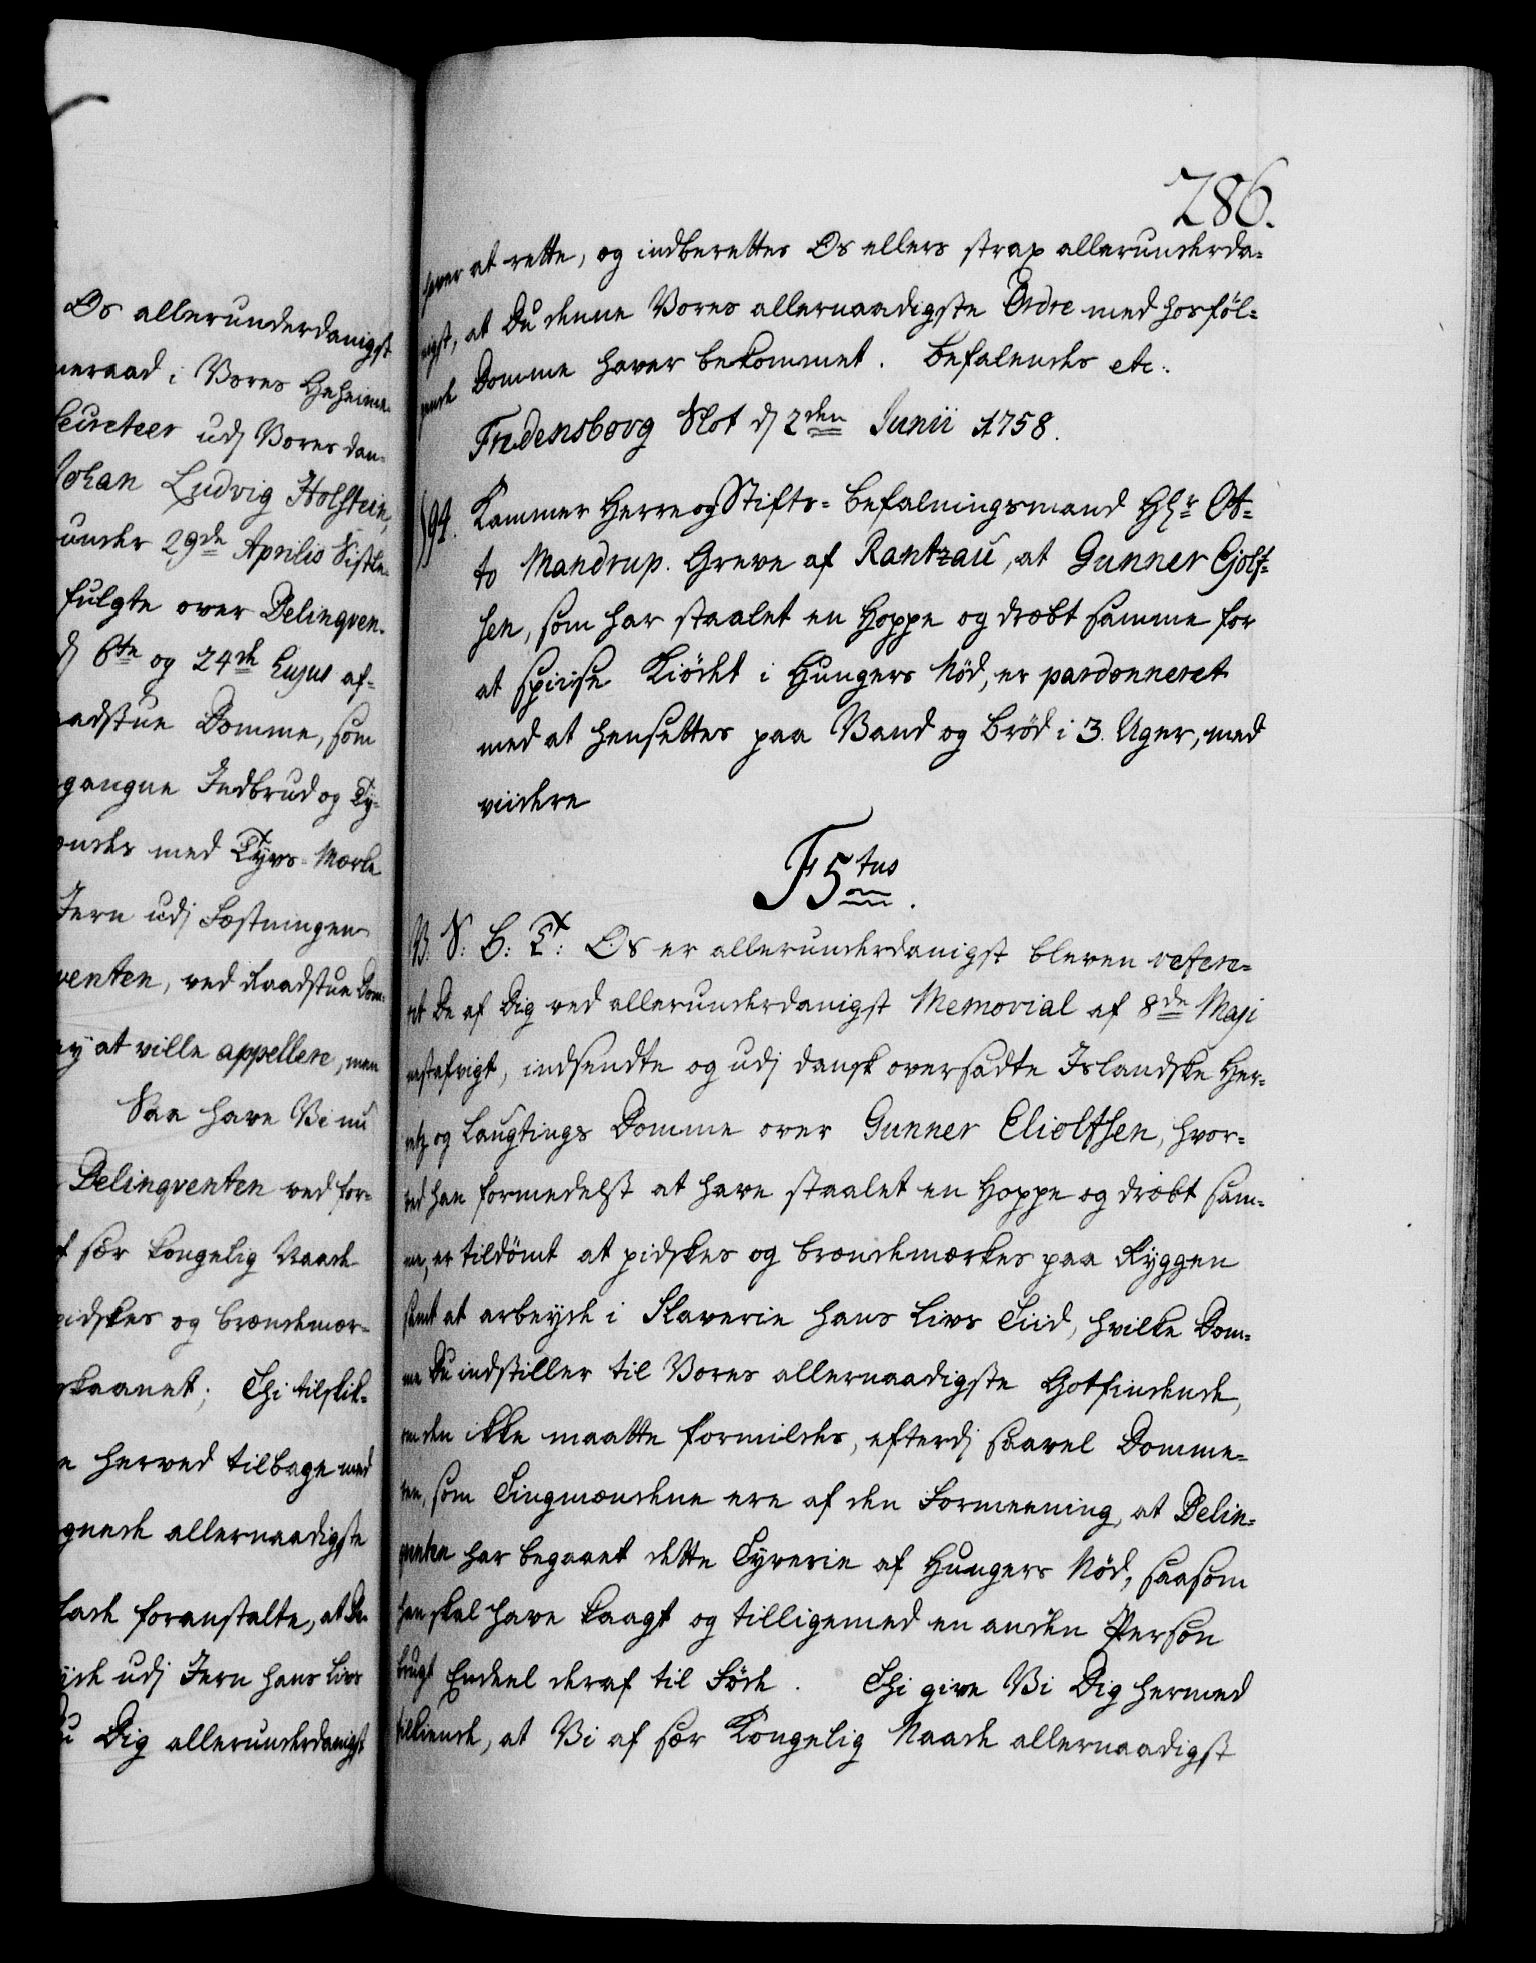 Os allerunderdanigst
meraad i Vores Geheime-
Secreteer udj Vores dan-
Johan Ludvig Holstein,
under 29de Aprilis Sistle-
fulgte over Delinqven-
dj 6te og 24de hujus af-
aadstue Domme, som
gangne Indbrud og Ty-
endes med Tyvs-Mærke
Jern udj Fæstningen
venten, ved Raadstue Dom-
ey at ville appellere, men
Saa have Vi nu
Delinqventen ved for-
af sær kongelig Naade
pidskes og brændemær-
skaanet; Thi tilskik-
e herved tilbage med
gnede allernaadigste
lade foranstalte, at De-
yde udj Jern hans Livs
Du Dig allerunderdanigst
286.
haver at rette, og indberettes Os ellers strax allerunderda-
nigst, at Du denne Vores allernaadigste Ordre med hosføl-
gende Domme haver bekommet. Befalendes etc.
Fredensborg Slot dj 2den Junii 1758.
194. Kammer Herre og Stifts-Befalningsmand Hr Ot-
to Mandrup Greve af Rantzau, at Gunner Ejolf-
sen, som har staalet en Hoppe og dræbt samme for
at spiise Kiødet i Hungers Nød, er pardonneret
med at hensettes paa Vand og Brød i 3 Uger, med
viidere
F5tus.
V. S: G: T: Os er allerunderdanigst bleven refere-
ret De af Dig ved allerunderdanigst Memorial af 8de Maji
nestafvigt, indsendte og udj dansk oversadte Islandske Her-
retz og Laugtings Domme over Gunner Eliolfsen, hvor-
ved han formedelst at have staalet en Hoppe og dræbt sam-
me, er tildømt at pidskes og brændemærkes paa Ryggen
samt at arbeyde i Slaverie hans Livs Tiid, hvilke Dom-
me Du indstiller til Vores allernaadigste Gotfindende,
om den ikke maatte formildes, efterdj saavel Domme-
ren, som Tingmændene ere af den Formeening, at Delin-
qventen har begaaet dette Tyverie af Hungers Nød, saasom
han skal have kaagt og tilligemed en anden Person
brugt Endeel deraf til Føde. Thi give Vi Dig hermed
tilkiende, at Vi af sær Kongelig Naade allernaadigst